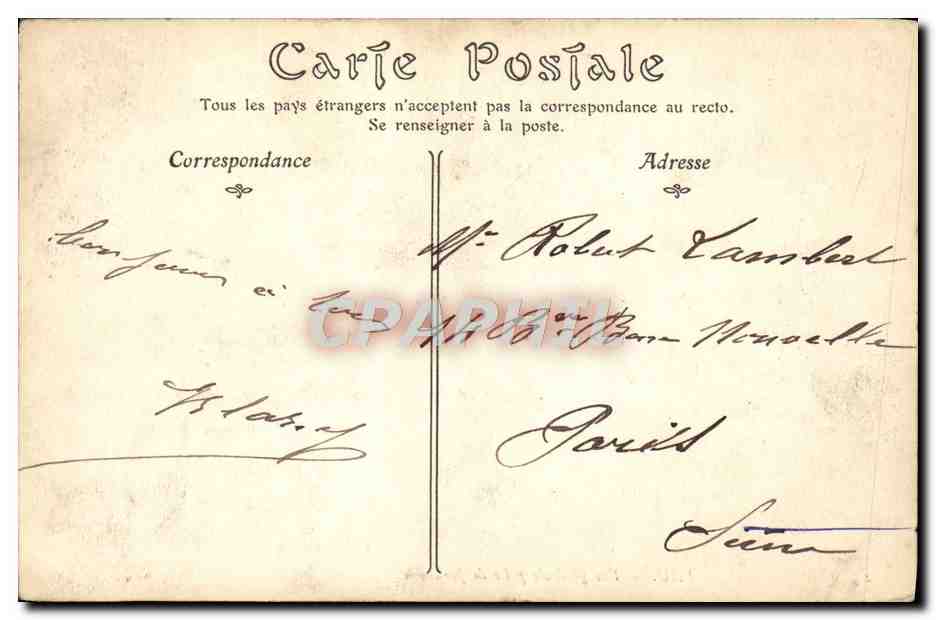 Carte Postale
Tous les pays étrangers n'acceptent pas la correspondance au recto.
Se renseigner à la poste.
Correspondance
Adresse
bon jour à tous
Mr Robert Lambert
14 Bd Bonne Nouvelle
Paris
Seine
CPAPHIL